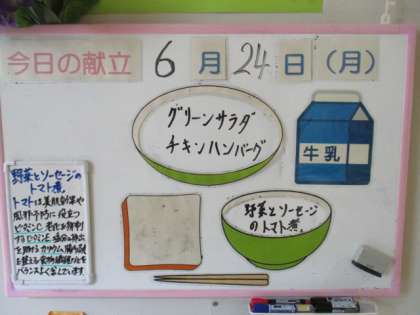 今日の献立 6月24日(月)
グリーンサラダ
チキンハンバーグ
牛乳
野菜とソーセージ
のトマト煮
野菜とソーセージの
トマト煮
トマトは美肌効果や
風邪予防に役立つ
ビタミンC、老化を抑制
するビタミンE、塩分の排出
を助けるカリウム、腸内環境
を整える食物繊維などを
バランスよく含んでいます